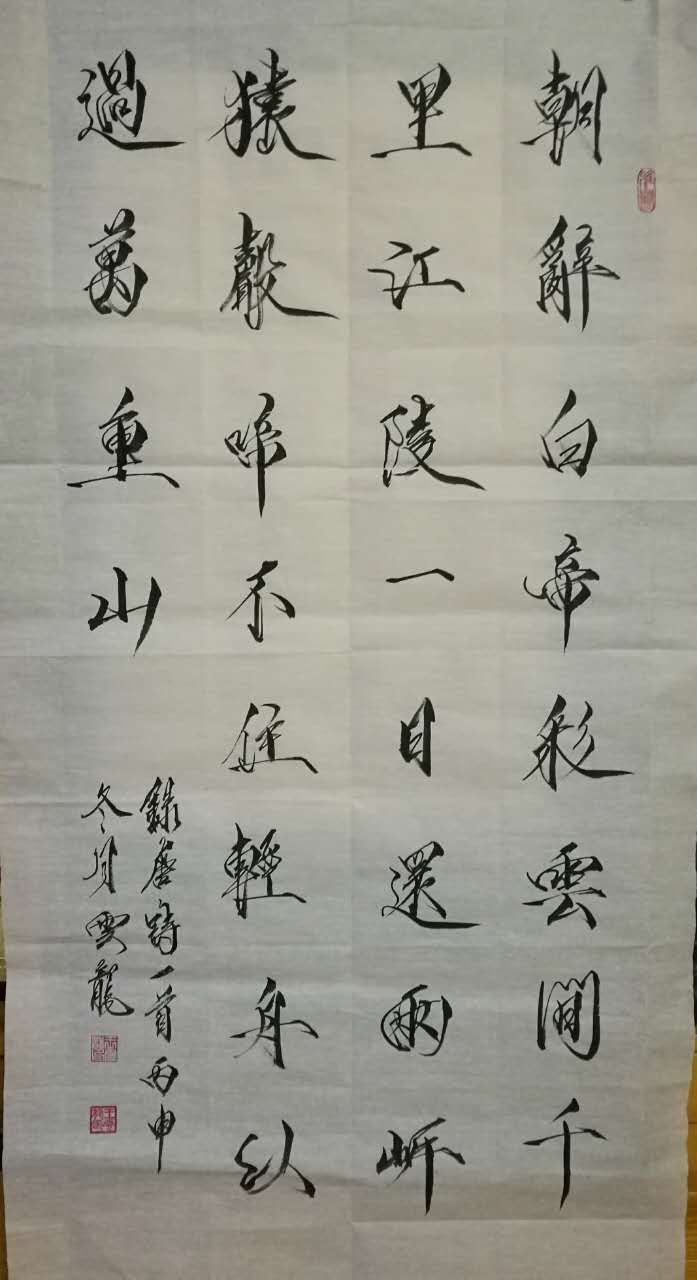 朝辭白帝彩雲間千
里江陵一日還兩岍
猿聲啼不住輕舟以
過萬重山
錄唐詩一首丙申
冬月雲龍